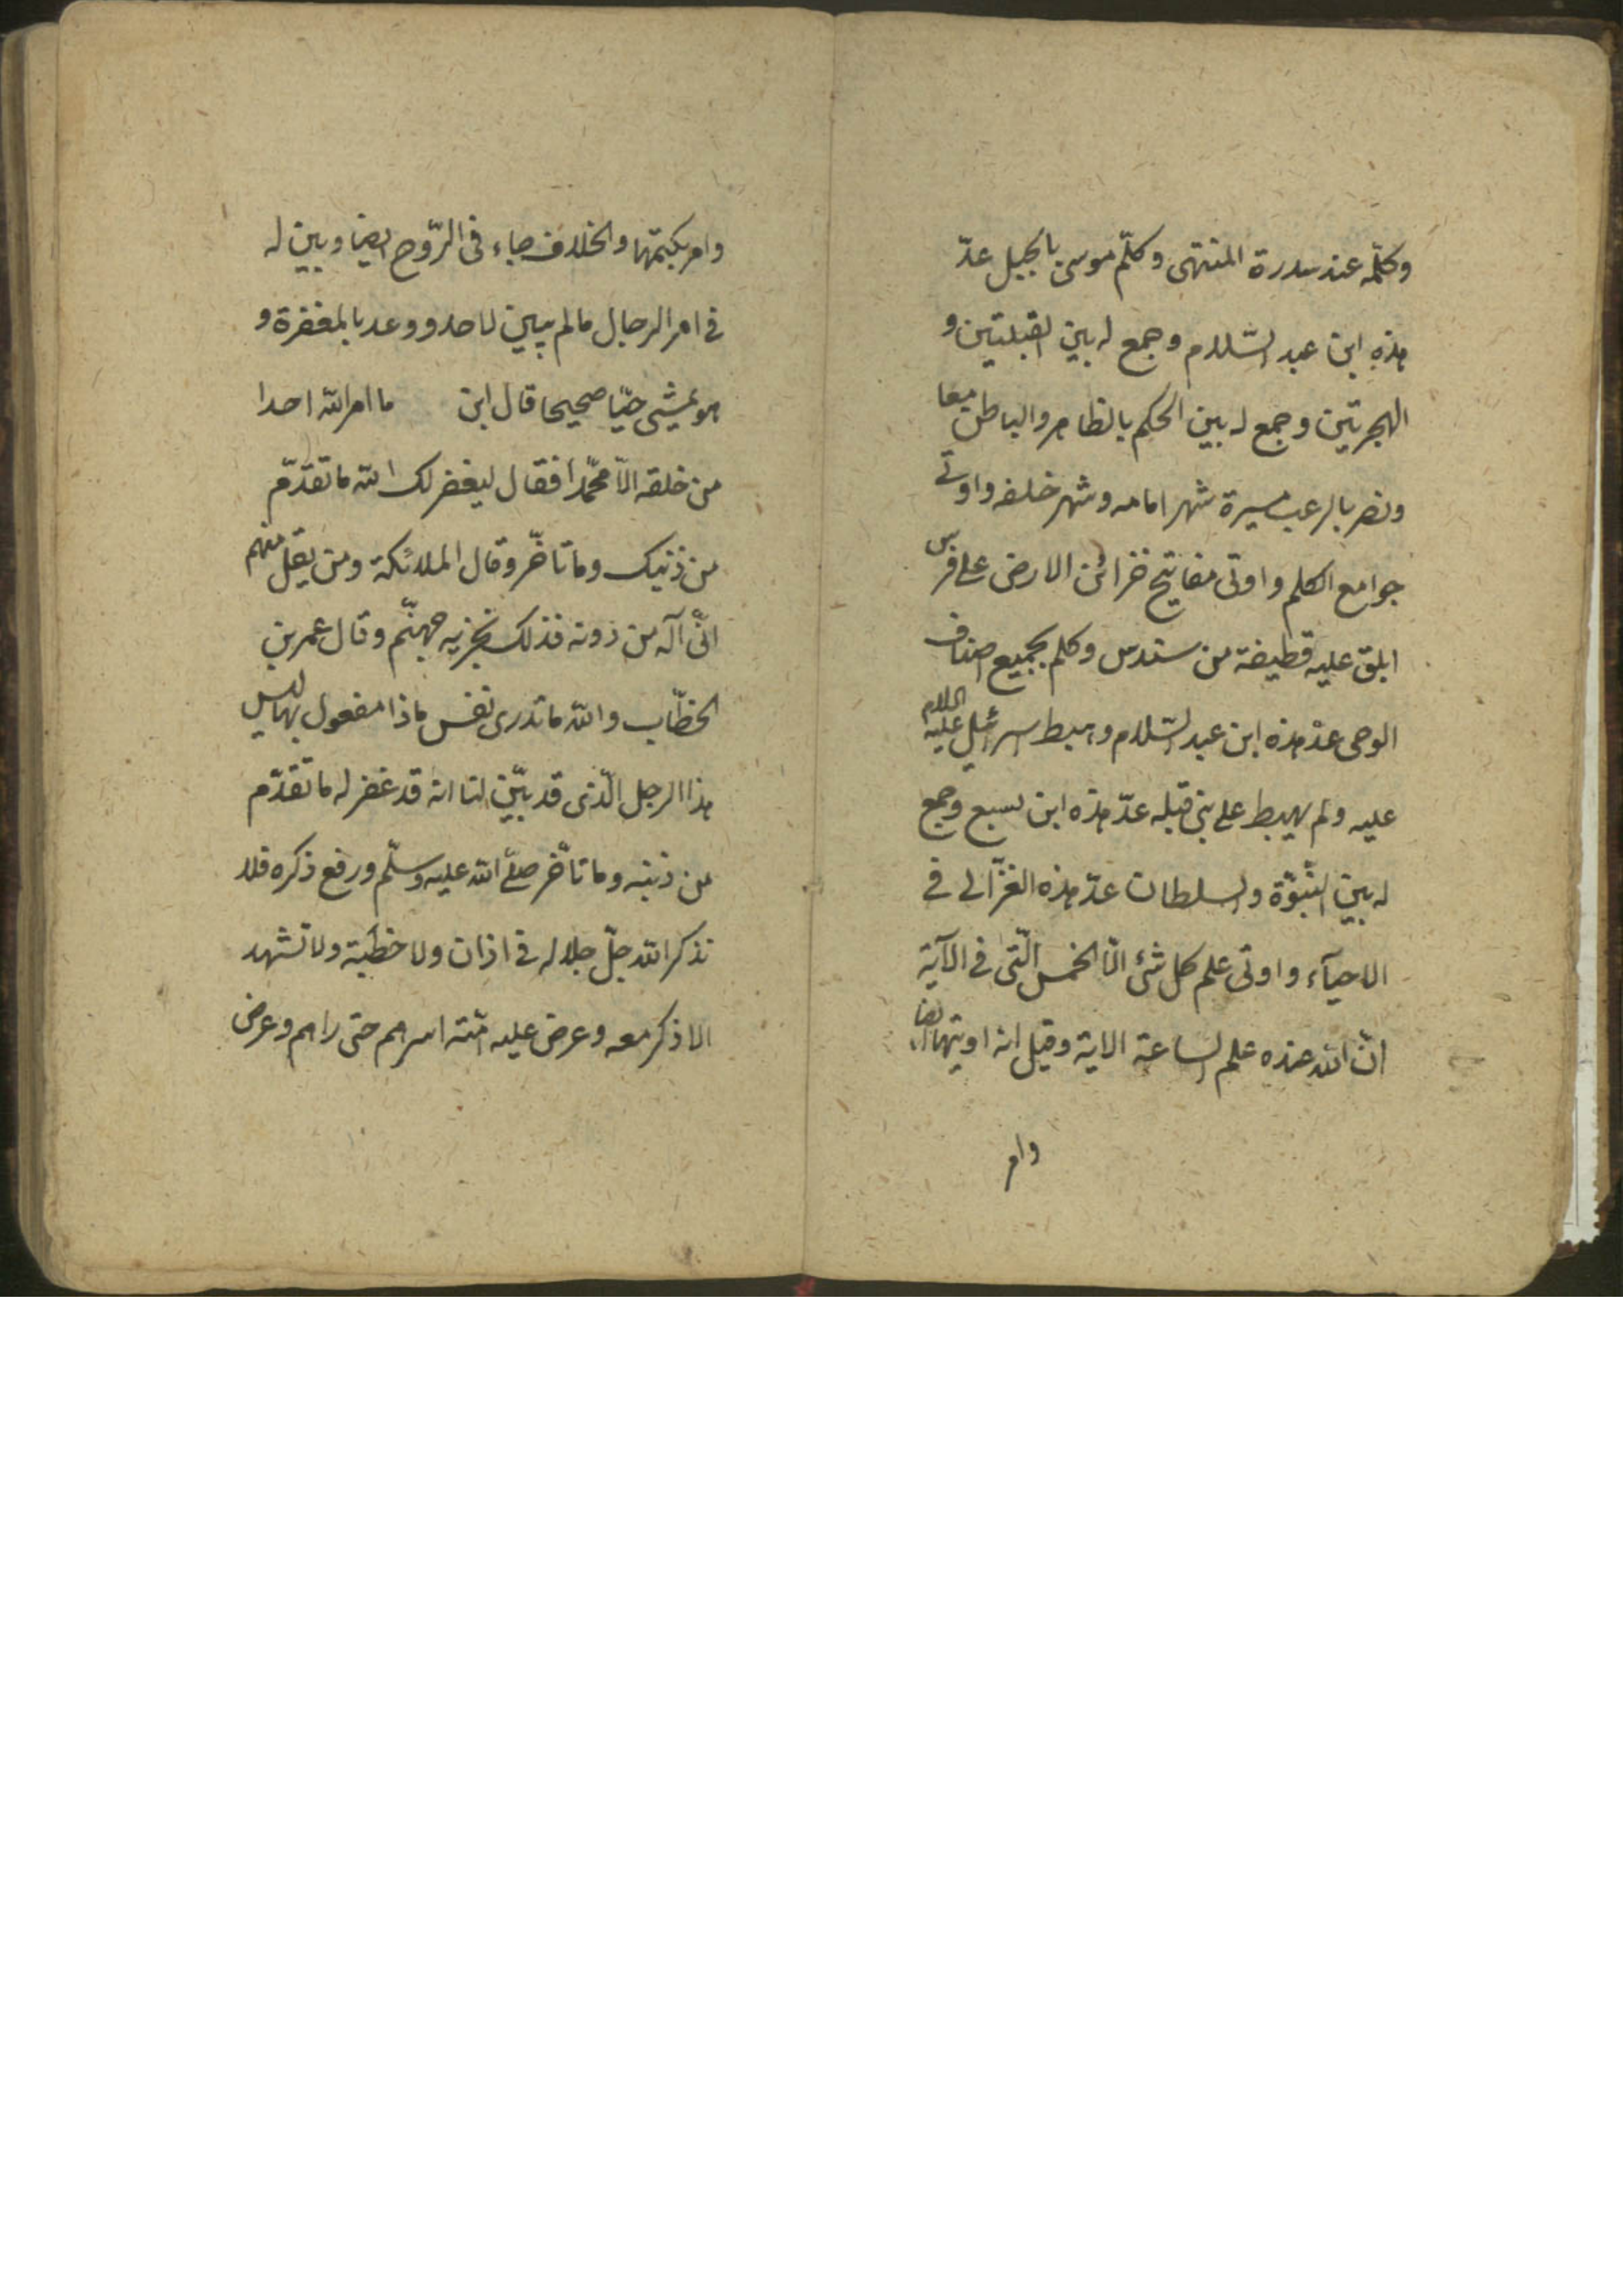 وكلّمه عند سدرة المنتهى وكلّم موسى بالجبل عدّ
هذه ابن عبد السّلام وجمع له بين القبلتين و
الهجرتين وجمع له بين الحكم بالظاهر والباطن معا
ونصر بالرعب مسيرة شهر امامه وشهر خلفه واوتى
جوامع الكلم واوتى مفاتيح خزائن الارض على فرس
ابلق عليه قطيفة من سندس وكلم بجميع اصناف
الوحى عدّ هذه ابن عبد السّلام وهبط اسرافيل عليه السلام
عليه ولم يهبط على نبى قبله عدّ هذه ابن سبع وجمع
له بين النّبوّة والسلطان عدّ هذه الغزّالى فى
الاحيآء واوتى علم كل شئ الّا الخمس الّتى فى الآية
انّ الله عنده علم الساعة الاية وقيل انه اوتيها ايضا
وامر
وامر بكتمها والخلاف جاء فى الرّوح ايضا وبين له
فى امر الرجال مالم يبين لاحد ووعد بالمغفرة و
هو يمشى حيّا صحيحا قال ابن ما امر الله احدا
من خلقه الّا محمّدا فقال ليغفر لك الله ما تقدّم
من ذنبك وما تاخّر وقال الملائكة ومن يقل منهم
انّى آله من دونه فذلك نجزيه جهنّم وقال عمر بن
الخطّاب والله ما تدرى نفس ماذا مفعول بها ليس
هذا الرجل الّذى قد بيّن لنا انه قد غفر له ما تقدّم
من ذنبه وما تأخّر صلّى الله عليه وسلّم ورفع ذكره فلا
تذكر الله جلّ جلاله فى اذان ولا خطبة ولا تشهد
الا ذكر معه وعرض عليه امّته اسرهم حتى راهم وعرض